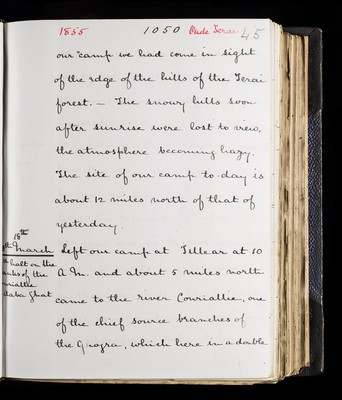 1855 1050 Oude Terai 45
our camp we had come in sight
of the edge of the hills of the Terai
forest. — The snowy hills soon
after sunrise were lost to view,
the atmosphere becoming hazy.
The site of our camp to-day is
about 12 miles north of that of
yesterday.
18th
March Left our camp at Tillear at 10
halt on the
A.M. and about 5 miles north
banks of the
came to the river Couriallie, one
Ghat
of the chief source branches of
the Gogra, which here in a double